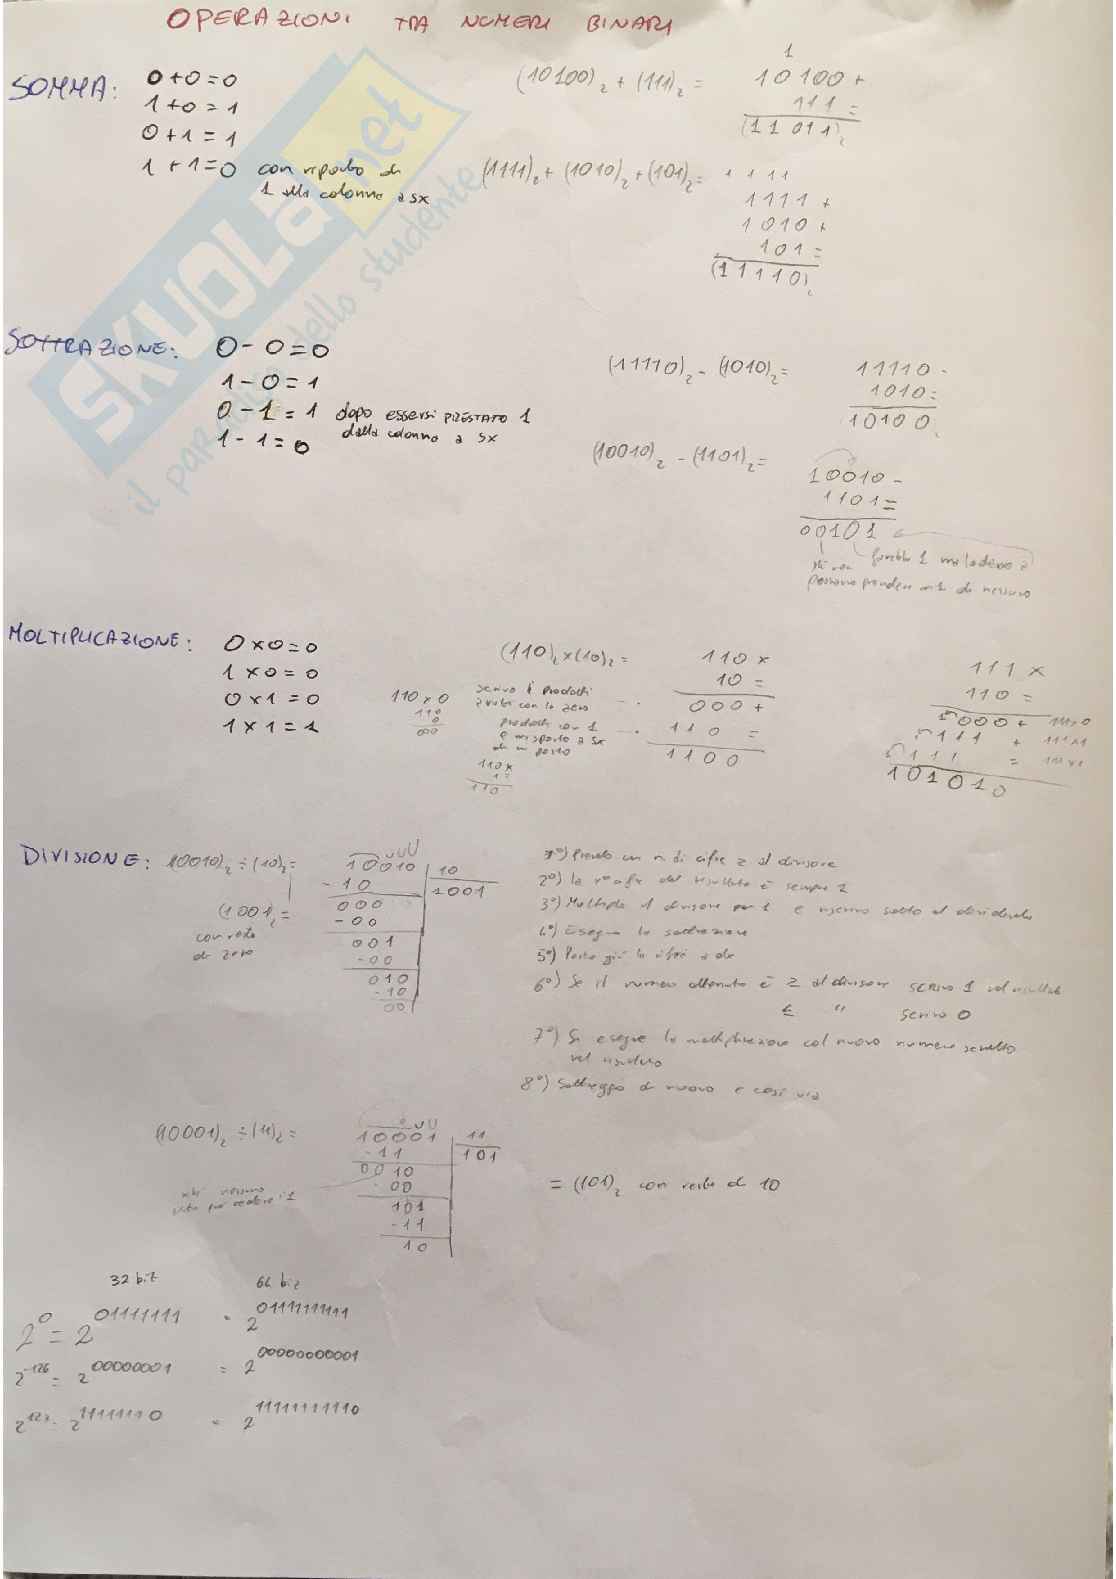 OPERAZIONI TRA NUMERI BINARI
SOMMA:
0+0=0
1+0=1
0+1=1
1+1=0 con riporto di
1 alla colonna a sx
(10100)₂ + (111)₂ =
1
10100 +
111 =
(11011)₂
(1111)₂ + (1010)₂ + (101)₂ =
1 1 1 1
1111 +
1010 +
101 =
(11110)₂
SKUOLA.net
il paradiso dello studente
SOTTRAZIONE:
0-0=0
1-0=1
0-1=1 dopo essersi PRESTATO 1
dalla colonna a sx
1-1=0
(11110)₂ - (1010)₂ =
11110 -
1010 =
10100
(10010)₂ - (1101)₂ =
10010 -
1101 =
00101
sarebbe 1
nessuno
MOLTIPLICAZIONE:
0x0=0
1x0=0
0x1=0
1x1=1
(110)₂ x (10)₂ =
110 x
10 =
000 +
110 =
1100
110 x 0
110
0
000
scrivo i prodotti
con lo zero
prodotti con 1
a sx
di un posto
110 x
1 =
110
111 x
110 =
000 + 111x0
111 + 111x1
111 = 111x1
101010
DIVISIONE:
(10010)₂ ÷ (10)₂ =
(1001)₂ =
con resto
di zero
10010 10
- 10 1001
000
- 00
001
- 00
010
- 10
00
1°) Prendo un n. di cifre ≥ al divisore
2°) la 1ª cifra del risultato è sempre 1
3°) Moltiplico il divisore per 1 e inserisco sotto al dividendo
4°) Eseguo la sottrazione
5°) Porto giù la cifra a dx
6°) Se il numero ottenuto è ≥ al divisore scrivo 1 nel risultato
≤ " scrivo 0
7°) Si esegue la moltiplicazione col nuovo numero scritto
nel risultato
8°) Sottraggo di nuovo e così via
(10001)₂ ÷ (11)₂ =
10001 11
- 11 101
0010
- 00
101
- 11
10
= (101)₂ con resto di 10
32 bit 64 bit
2⁰ = 2^01111111 = 2^01111111111
2^-126 = 2^00000001 = 2^00000000001
2^127 = 2^11111110 = 2^11111111110